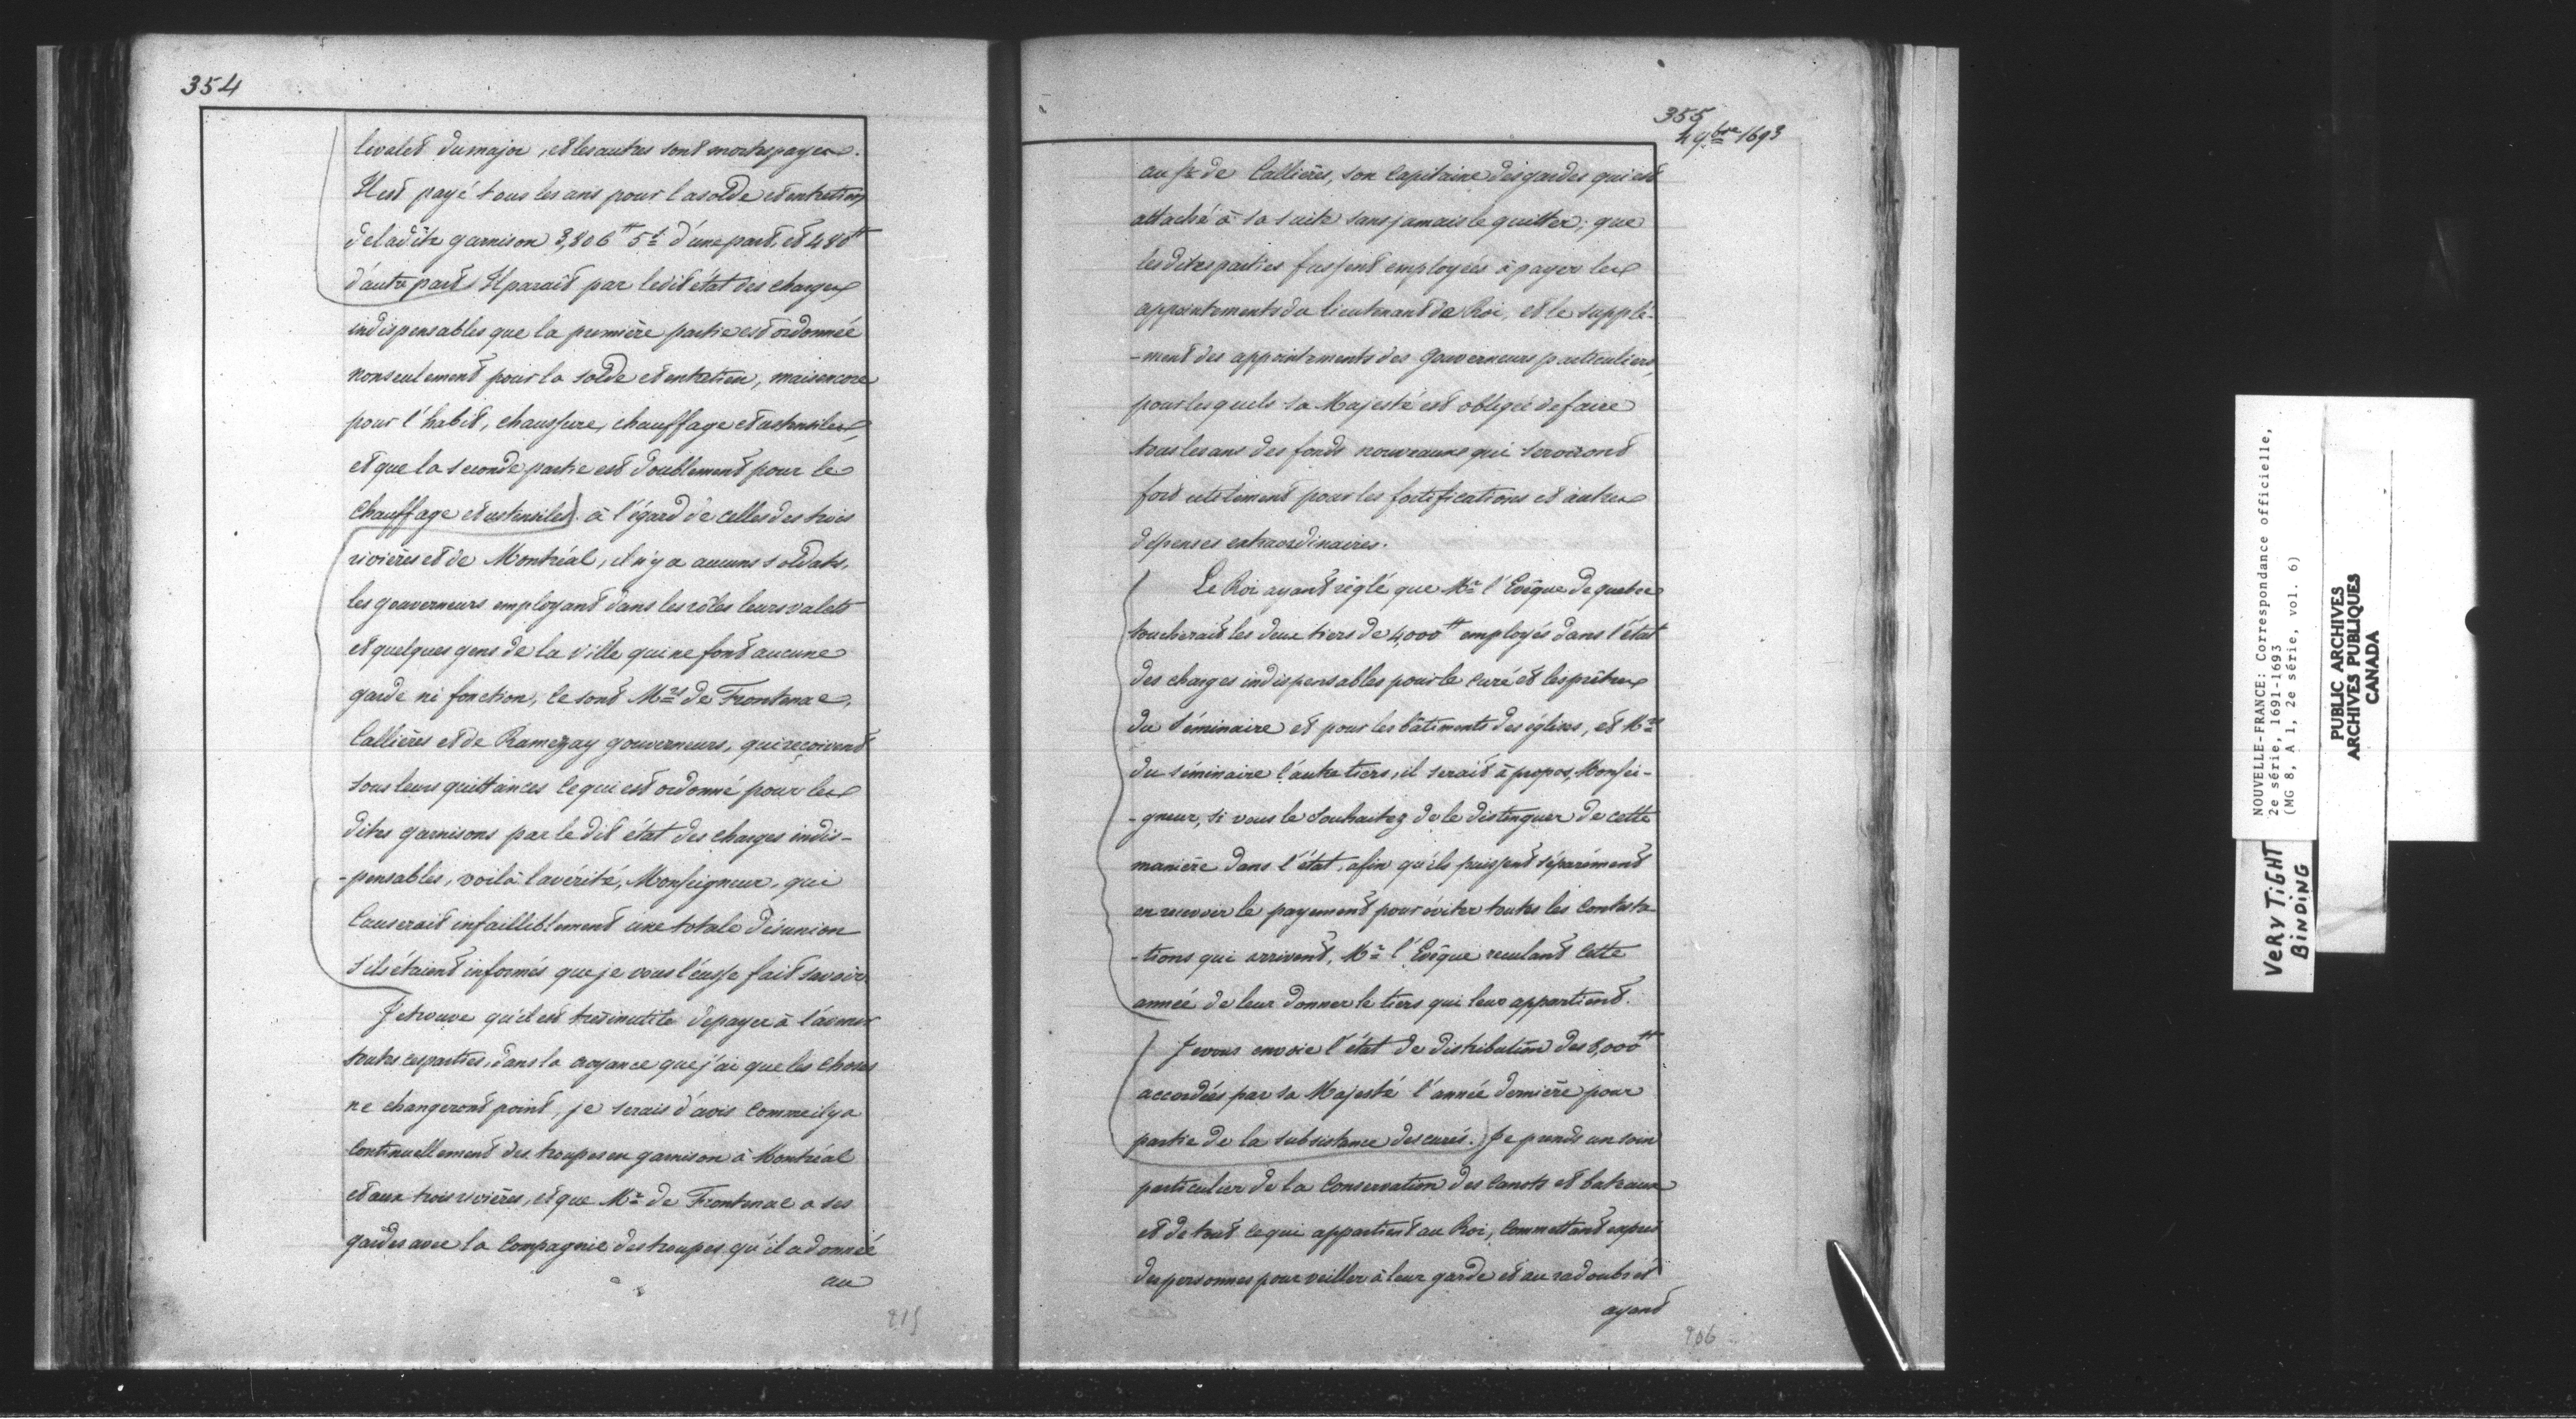 354
le valet du major, et les autres sont mortespayes.
Il est payé tous les ans pour la solde et entretien
de ladite garnison 3,806tt 5s d'une part, et 480tt
d'autre part. Il parait par ledit état des charges
indispensables que la première partie est ordonnée
non seulement pour la solde et entretien, mais encore
pour l'habit, chaussure, chauffage et ustensiles,
et que la seconde partie est doublement pour le
chauffage et ustensiles. à l'égard de celles des trois
rivières et de Montréal, il n'y a aucuns soldats,
les gouverneurs employant dans les rôles leurs valets
et quelques gens de la ville qui ne font aucune
garde ni fonction, ce sont Mrs de Frontenac,
Callières et de Ramezay gouverneurs, qui reçoivent
sous leurs quittances ce qui est ordonné pour les
dites garnisons par le dit état des charges indis-
-pensables, voilà la vérité, Monseigneur, qui
causerait infailliblement une totale désunion
s'ils étaient informés que je vous l'eusse fait savoir.
Je trouve qu'il est très inutile de payer à l'avenir
toutes ces parties, dans la croyance que j'ai que les choses
ne changeront point, je serais d'avis comme il y a
continuellement des troupes en garnison à Montréal
et aux trois rivières, et que Mr de Frontenac a ses
gardes avec la compagnie des troupes qu'il a donnée
au
215
355
4 9bre 1693
au Sr de Callières, son capitaine des gardes qui est
attaché à sa suite sans jamais le quitter; que
les dites parties fussent employées à payer les
appointements du lieutenant de Roi, et le supplé-
-ment des appointements des gouverneurs particuliers,
pour lesquels sa Majesté est obligée de faire
tous les ans des fonds nouveaux qui serviront
fort utilement pour les fortifications et autres
dépenses extraordinaires.
Le Roi ayant réglé que Mr l'Evêque de quebec
toucherait les deux tiers de 4,000tt employés dans l'état
des charges indispensables pour le curé et les prêtres
du séminaire et pour les bâtiments des églises, et Mrs
du séminaire l'autre tiers, il serait à propos, Monsei-
-gneur, si vous le souhaitez de le distinguer de cette
manière dans l'état, afin qu'ils puissent séparément
en recevoir le payement pour éviter toutes les contesta-
-tions qui arrivent, Mr l'Evêque reculant cette
année de leur donner le tiers qui leur appartient.
Je vous envoie l'état de distribution des 8,000tt
accordées par sa Majesté l'année dernière pour
partie de la subsistance des curés. Je prends un soin
particulier de la conservation des canots et bateaux
et de tout ce qui appartient au Roi, commettant exprès
des personnes pour veiller à leur garde et au radoubs et
ayant
206
NOUVELLE-FRANCE: Correspondance officielle,
2e série, 1691-1693
(MG 8, A 1, 2e série, vol. 6)
VERY TIGHT
BINDING
PUBLIC ARCHIVES
ARCHIVES PUBLIQUES
CANADA